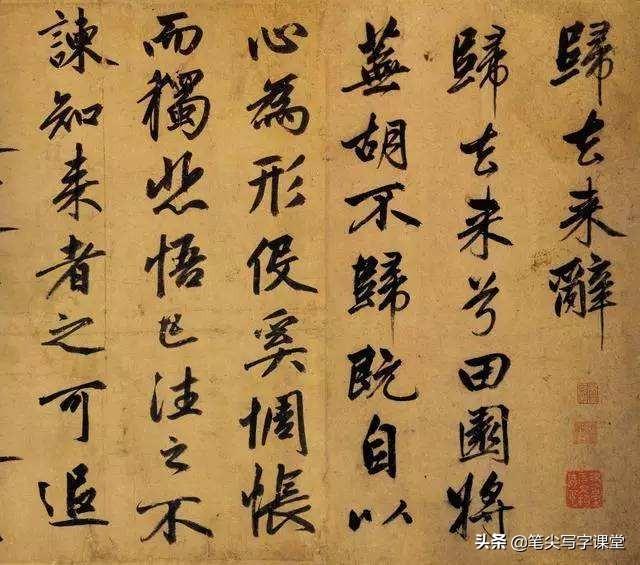 歸去来辭
歸去来兮田園將
蕪胡不歸既自以
心為形役奚惆悵
而獨悲悟已往之不
諫知来者之可追
头条 @笔尖写字课堂